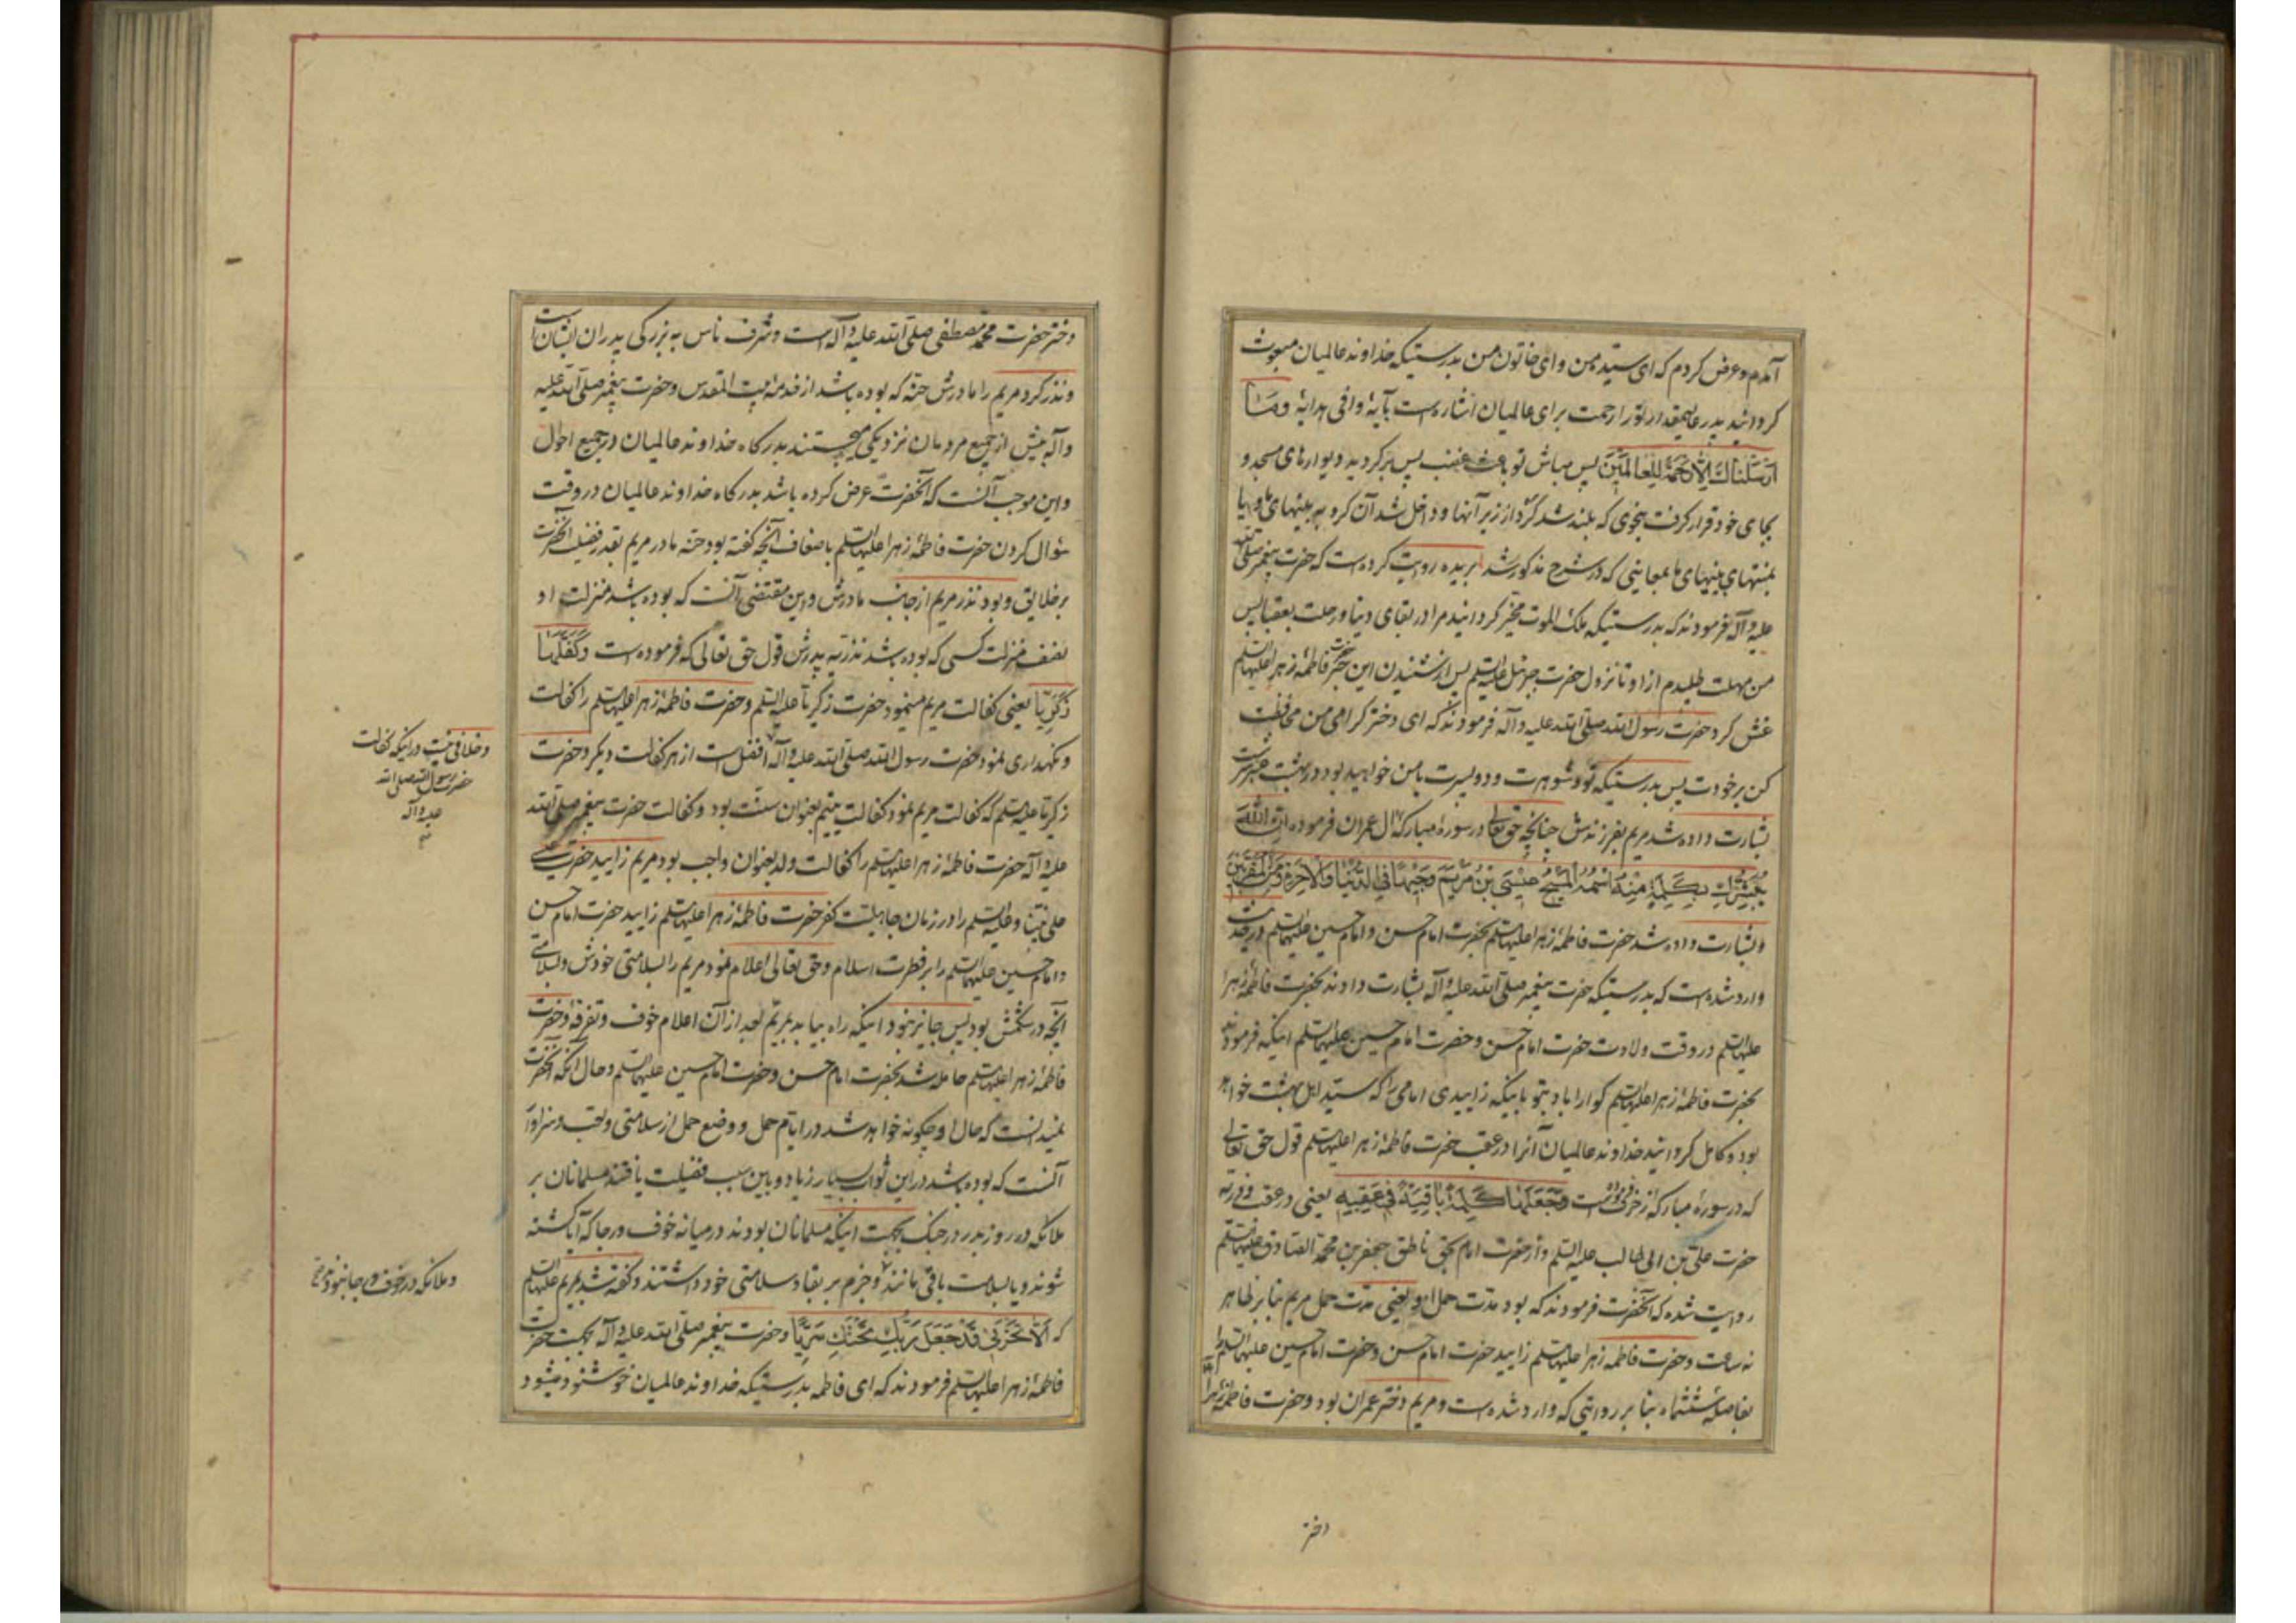 آمدم و عرض کردم که ای سیّده من و ای خاتون من بدرستیکه خداوند عالمیان مبعوث
کردانید پدر عالیمقدار تو را رحمت برای عالمیان اشاره است بآیهٔ وافی هدایهٔ وَمٰا
اَرْسَلْنٰاكَ اِلّٰا رَحْمَةً لِلْعٰالَمینَ پس مباش تو باعث غضب پس برکردید دیوارهای مسجد و
بجای خود قرار کرفت بنحوی که بلند شد کرد از زیر آنها و داخل شد آن کرد به بینیهای ما و یا
بمنتهای بینیهای ما بمعانیی که در شرح مذکور شد بریده روایت کرده است که حضرت پیغمبر صلّی اللّه
علیه و آله فرمودند که بدرستیکه ملک الموت مخیّر کردانید مرا در بقای دنیا و رحلت بعقبا پس
من مهلت طلبیدم از او تا نزول حضرت جبرئیل علیه السّلم پس از شنیدن این خبر حضرت فاطمهٔ زهرا علیها السّلم
غش کرد و حضرت رسول اللّه صلّی اللّه علیه و آله فرمودند که ای دختر کرامی من محافظت
کن بر خودت پس بدرستیکه تو و شوهرت و دو پسرت با من خواهید بود در بهشت عنبر سرشت
بشارت داده شد مریم بفرزندش چنانچه حق تعالی در سورهٔ مبارکهٔ آل عمران فرموده اِنَّ اللّٰهَ
یُبَشِّرُكِ بِكَلِمَةٍ مِنْهُ اسْمُهُ الْمَسیحُ عیسَی بْنُ مَرْیَمَ وَجیهاً فِی الدُّنْیٰا وَالْاٰخِرَةِ وَمِنَ الْمُقَرَّبینَ
و بشارت داده شد حضرت فاطمهٔ زهرا علیها السّلم بحضرت امام حسن و امام حسین علیهما السّلم در حدیث
وارد شده است که بدرستیکه حضرت پیغمبر صلّی اللّه علیه و آله بشارت دادند بحضرت فاطمهٔ زهرا
علیها السّلم در وقت ولادت حضرت امام حسن و حضرت امام حسین علیهما السّلم اینکه فرمودند
بحضرت فاطمهٔ زهرا علیها السّلم کوارا باد بتو باینکه زاییدی امامی را که سیّد اهل بهشت خواهد
بود و کامل کردانید خداوند عالمیان آنرا در عقب حضرت فاطمهٔ زهرا علیها السّلم قول حق تعالی
که در سورهٔ مبارکهٔ زخرف فرموده است وَجَعَلَهٰا كَلِمَةً بٰاقِیَةً فی عَقِبِهِ یعنی در عقب و ذریه
حضرت علیّ بن ابی طالب علیه السّلم و از حضرت امام بحق ناطق جعفر بن محمّد الصّادق علیهما السّلم
روایت شده که آنحضرت فرمودند که بود مدّت حمل او یعنی مدّت حمل مریم بنا بر ظاهر
نه ساعت و حضرت فاطمه زهرا علیها السّلم زایید حضرت امام حسن و حضرت امام حسین علیهما السّلم را
بفاصلهٔ ششماه بنا بر روایتی که وارد شده است و مریم دختر عمران بود و حضرت فاطمهٔ زهرا
دختر
دختر حضرت محمّد مصطفی صلّی اللّه علیه و آله است و شرف ناس به بزرکی پدران ایشان است
و نذر کرد مریم را مادرش حنّه که بوده باشد از خدمهٔ بیت المقدس و حضرت پیغمبر صلّی اللّه علیه
و آله بیش از جمیع مردمان نزدیکی میجستند بدرکاه خداوند عالمیان در جمیع احوال
و این موجب آنست که آنحضرت عرض کرده باشد بدرکاه خداوند عالمیان در وقت
سؤال کردن حضرت فاطمهٔ زهرا علیها السّلم باضعاف آنچه کفته بود حنّه مادر مریم بقدر فضیلت آنحضرت
بر خلایق و بود نذر مریم از جانب مادرش و این مقتضی آنست که بوده باشد منزلت او
نصف منزلت کسی که بوده باشد نذر به پدرش قول حق تعالی که فرموده است وَكَفَّلَهٰا
زَكَرِیّٰا یعنی کفالت مریم مینمود حضرت زکریّا علیه السّلم و حضرت فاطمهٔ زهرا علیها السّلم را کفالت
و نکهداری نمود حضرت رسول اللّه صلّی اللّه علیه و آله افضل است از هر کفالت دیکر و حضرت
زکریّا علیه السّلم که کفالت مریم نمود کفالت یتیم بعنوان سنّت بود و کفالت حضرت پیغمبر صلّی اللّه
علیه و آله حضرت فاطمهٔ زهرا علیها السّلم را کفالت ولد بعنوان واجب بود مریم زایید حضرت عیسی
علی نبیّنا و علیه السّلم را در زمان جاهلیّت کفر حضرت فاطمهٔ زهرا علیها السّلم زایید حضرت امام حسن
و امام حسین علیهما السّلم را بر فطرت اسلام و حق تعالی اعلام نمود مریم را بسلامتی خودش و بسلامتی
آنچه در شکمش بود پس جایز نبود اینکه راه بیابد بمریم بعد از آن اعلام خوف و تفرقه و حضرت
فاطمهٔ زهرا علیها السّلم حامله شد بحضرت امام حسن و حضرت امام حسین علیهما السّلم و حال آنکه آنحضرت
نمیدانست که حال او چکونه خواهد شد در ایّام حمل و وضع حمل از سلامتی و تعب و سزاوار
آنست که بوده باشد در این ثواب بسیار زیاد و باین سبب فضیلت یافتند مسلمانان بر
ملائکه در روز بدر در جنک بجهت اینکه مسلمانان بودند در میانه خوف و رجا که آیا کشته
شوند و یا بسلامت باقی مانند و جزم بر بقا و سلامتی خود داشتند و کفته شد بمریم علیها السّلم
که اَلّٰا تَحْزَنی قَدْ جَعَلَ رَبُّكِ تَحْتَكِ سَرِیّاً و حضرت پیغمبر صلّی اللّه علیه و آله بجهت حضرت
فاطمهٔ زهرا علیها السّلم فرمودند که ای فاطمه بدرستیکه خداوند عالمیان خوشنود میشود
و خلافی نیست در اینکه کفالت
حضرت رسول اللّه صلی اللّه
علیه و آله
و ملائکه در خوف و رجا نبودند